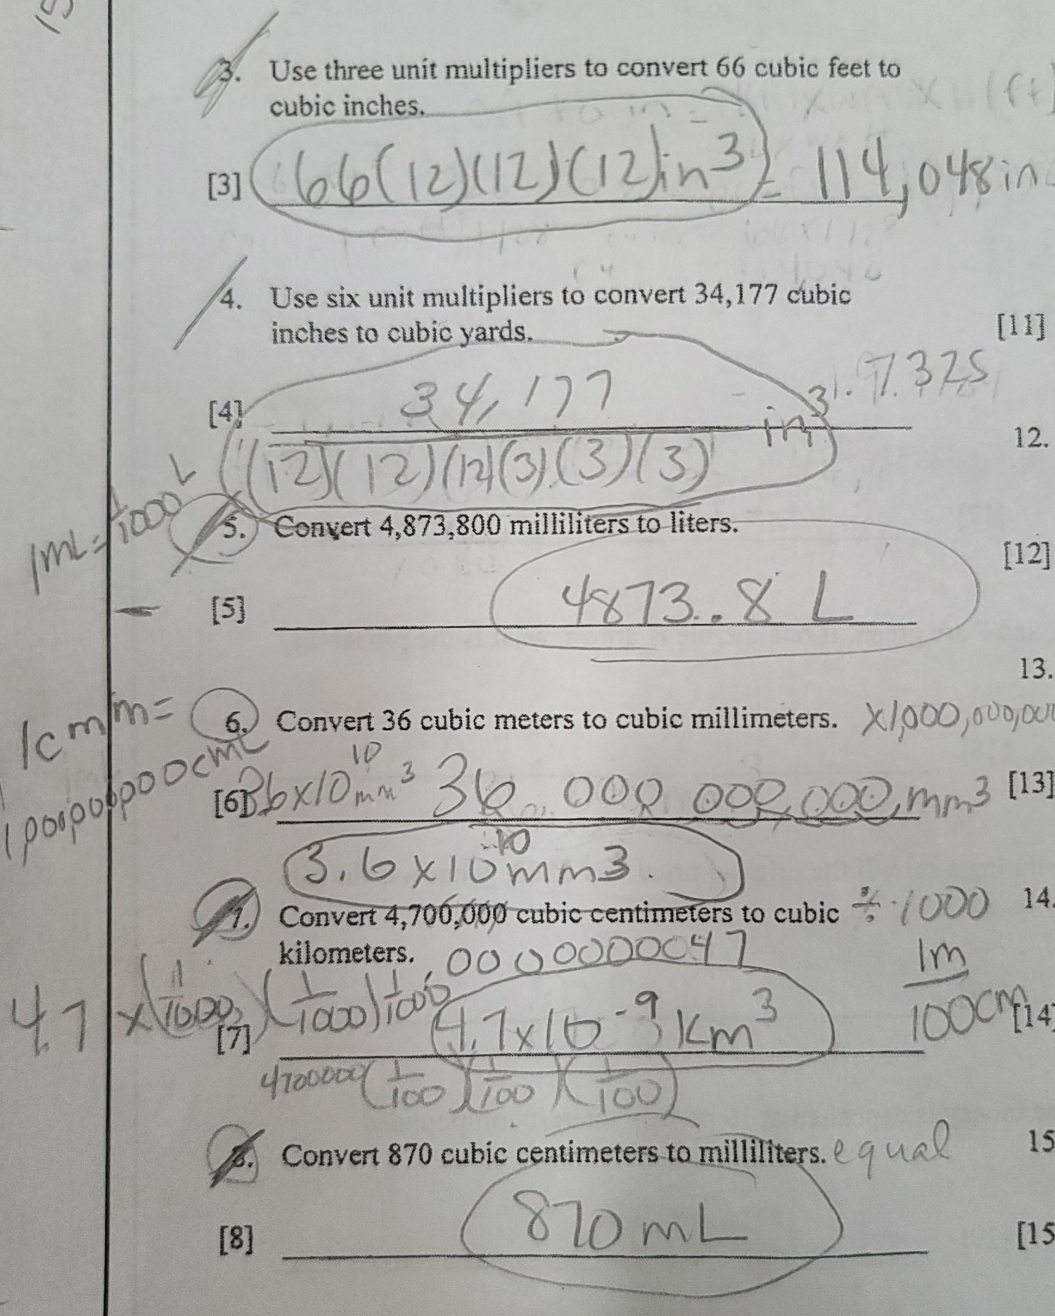 3. Use three unit multipliers to convert 66 cubic feet to
cubic inches.
[3] 66(12)(12)(12)in³ = 114,048in
4. Use six unit multipliers to convert 34,177 cubic
inches to cubic yards.
[11]
.7325
[4] 34,177 in³
(12)(12)(12)(3)(3)(3)
12.
1mL = 1/1000 L
5. Convert 4,873,800 milliliters to liters.
[12]
[5] 4873.8 L
13.
6. Convert 36 cubic meters to cubic millimeters. x1,000,000,000
[6] 3.6x10¹⁰mm³ 36 000 000,000,mm3 [13]
3.6x10¹⁰mm3.
7. Convert 4,700,000 cubic centimeters to cubic ÷ 1000 14.
kilometers. .0000000047
1m
100cm
4.7 x (1/1000)(1/1000)1/1000
[7] 4.7x10⁻⁹ Km³ [14
4700000(1/100)(1/100)(1/100)
8. Convert 870 cubic centimeters to milliliters. equal 15
[8] 870 mL [15